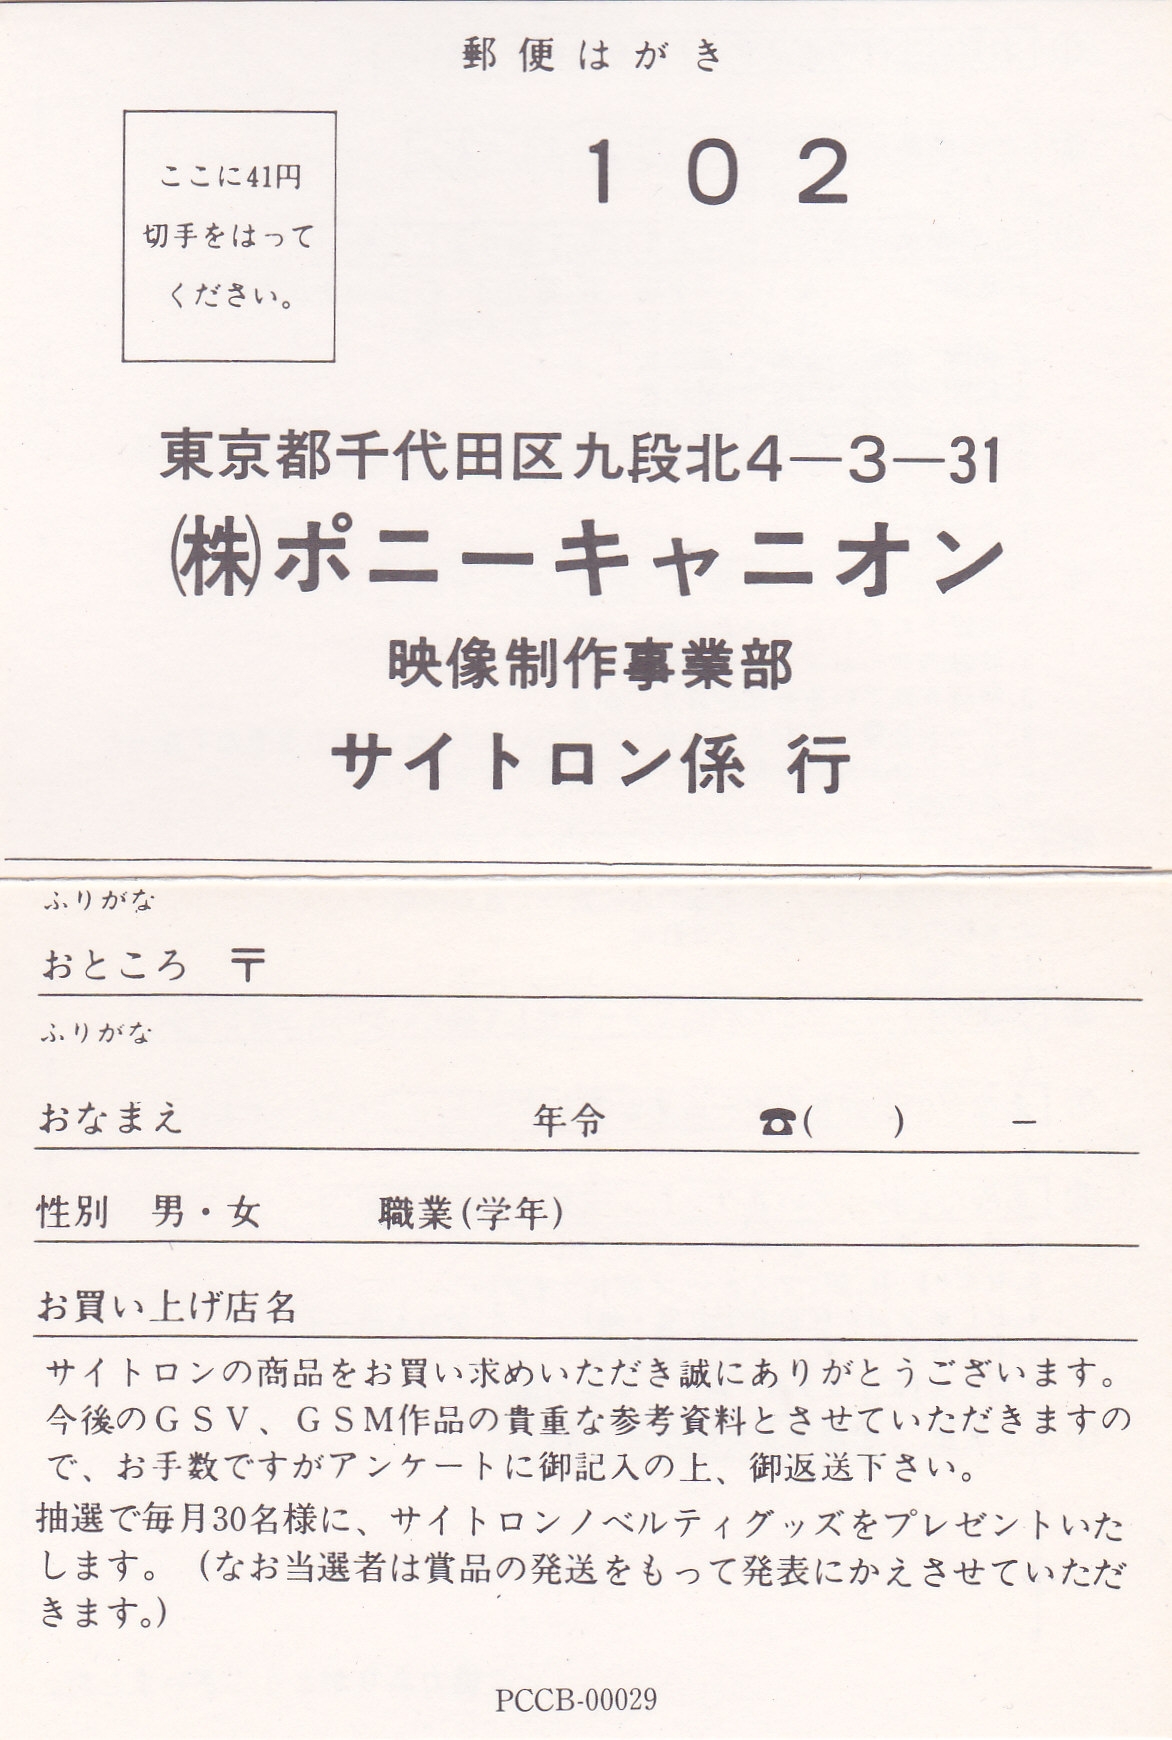 郵便はがき
102
ここに41円
切手をはって
ください。
東京都千代田区九段北4―3―31
㈱ポニーキャニオン
映像制作事業部
サイトロン係 行
ふりがな
おところ 〒
ふりがな
おなまえ 年令 ☎( ) −
性別 男・女 職業(学年)
お買い上げ店名
サイトロンの商品をお買い求めいただき誠にありがとうございます。
今後のGSV、GSM作品の貴重な参考資料とさせていただきますの
で、お手数ですがアンケートに御記入の上、御返送下さい。
抽選で毎月30名様に、サイトロンノベルティグッズをプレゼントいた
します。(なお当選者は賞品の発送をもって発表にかえさせていただ
きます。)
PCCB-00029